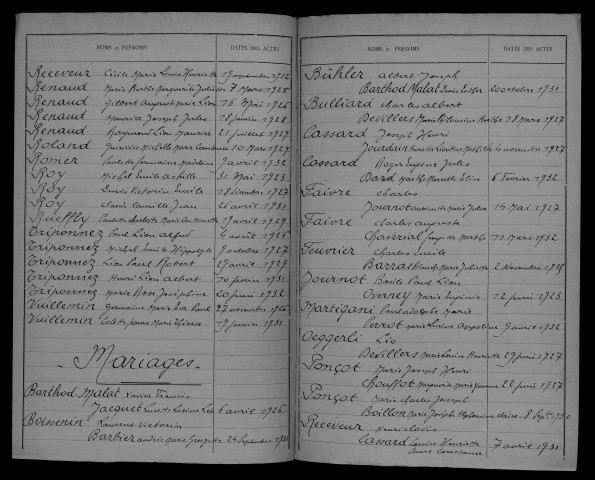 NOMS et PRÉNOMS DATES DES ACTES
Receveur Cécile Marie Louise Henriette 17 septembre 1922
Renaud Marie Berthe Marguerite 7 Mars 1925
Renaud Gilbert August Marie Léon 16 Mai 1926
Renaud Maurice Joseph Jules 18 janvier 1928
Renaud Raymond Léon Maurice 21 juillet 1929
Roland Michelle Marie Constance 10 Mars 1929
Romer Paulette Germaine Madeleine 9 avril 1932
Roy Michel Emile Achille 31 Mai 1923
Roy Denis Victorin Emile 18 Décembre 1927
Roy Claude Camille Jean 26 avril 1931
Rueffly Paulette Charlotte Marie Antoinette 19 avril 1929
Triponnez Paul Léon Alfred août 1926
Triponnez Michel Emile Hippolyte 9 octobre 1927
Triponnez Léon Paul Robert 29 avril 1929
Triponnez Henri Léon Albert 10 février 1931
Triponnez Marie Rose Joséphine 20 juin 1932
Vuillemin Germaine Marie Eva Paule 27 novembre 1926
Vuillemin Colette Jeanne Marie Thérèse 19 janvier 1931
- Mariages -
Barthod Malat Xavier Francis
Jacquet Lucie Léa 6 avril 1926
Boissenin Laurent Victorin
Barbier Marie Georgette 24 Septembre 1931
NOMS et PRÉNOMS DATES DES ACTES
Bühler Albert Joseph
Barthod Malat Marie Esther 20 octobre 1931
Bulliard Charles Albert
Devillers Marie Berthe 18 Mars 1927
Cassard Joseph Henri
Jourdain Mathilde 10 novembre 1927
Cassard Roger Eugène Jules
Bard Marthe Marcelle Elise 6 février 1932
Faivre Charles
Journot Antoinette Marie Julia 14 Mai 1927
Faivre Charles Auguste
Chaverial Georgette Marthe 12 Mars 1932
Feuvrier Charles Emile
Barras Blanche Marie Juliette 2 Novembre
Journot Basile Paul Léon
Overney Marie Eugénie 12 juin 1923
Martigani Paul Adolphe Marie
Perrot Marie Louise Léopoldine 9 avril 1932
Oeggerli Léo
Devillers Marie Louise Henriette 29 juin 1927
Ponçot Marie Joseph Henri
Chouffot Marguerite Marie Jeanne 22 juin 1927
Ponçot Marie Charles Joseph
Boillon Marie Josèphe Claire 8 Sept 1930
Receveur Henri Clovis
Cassard Louise Henriette 7 avril 1931
Laure Constance